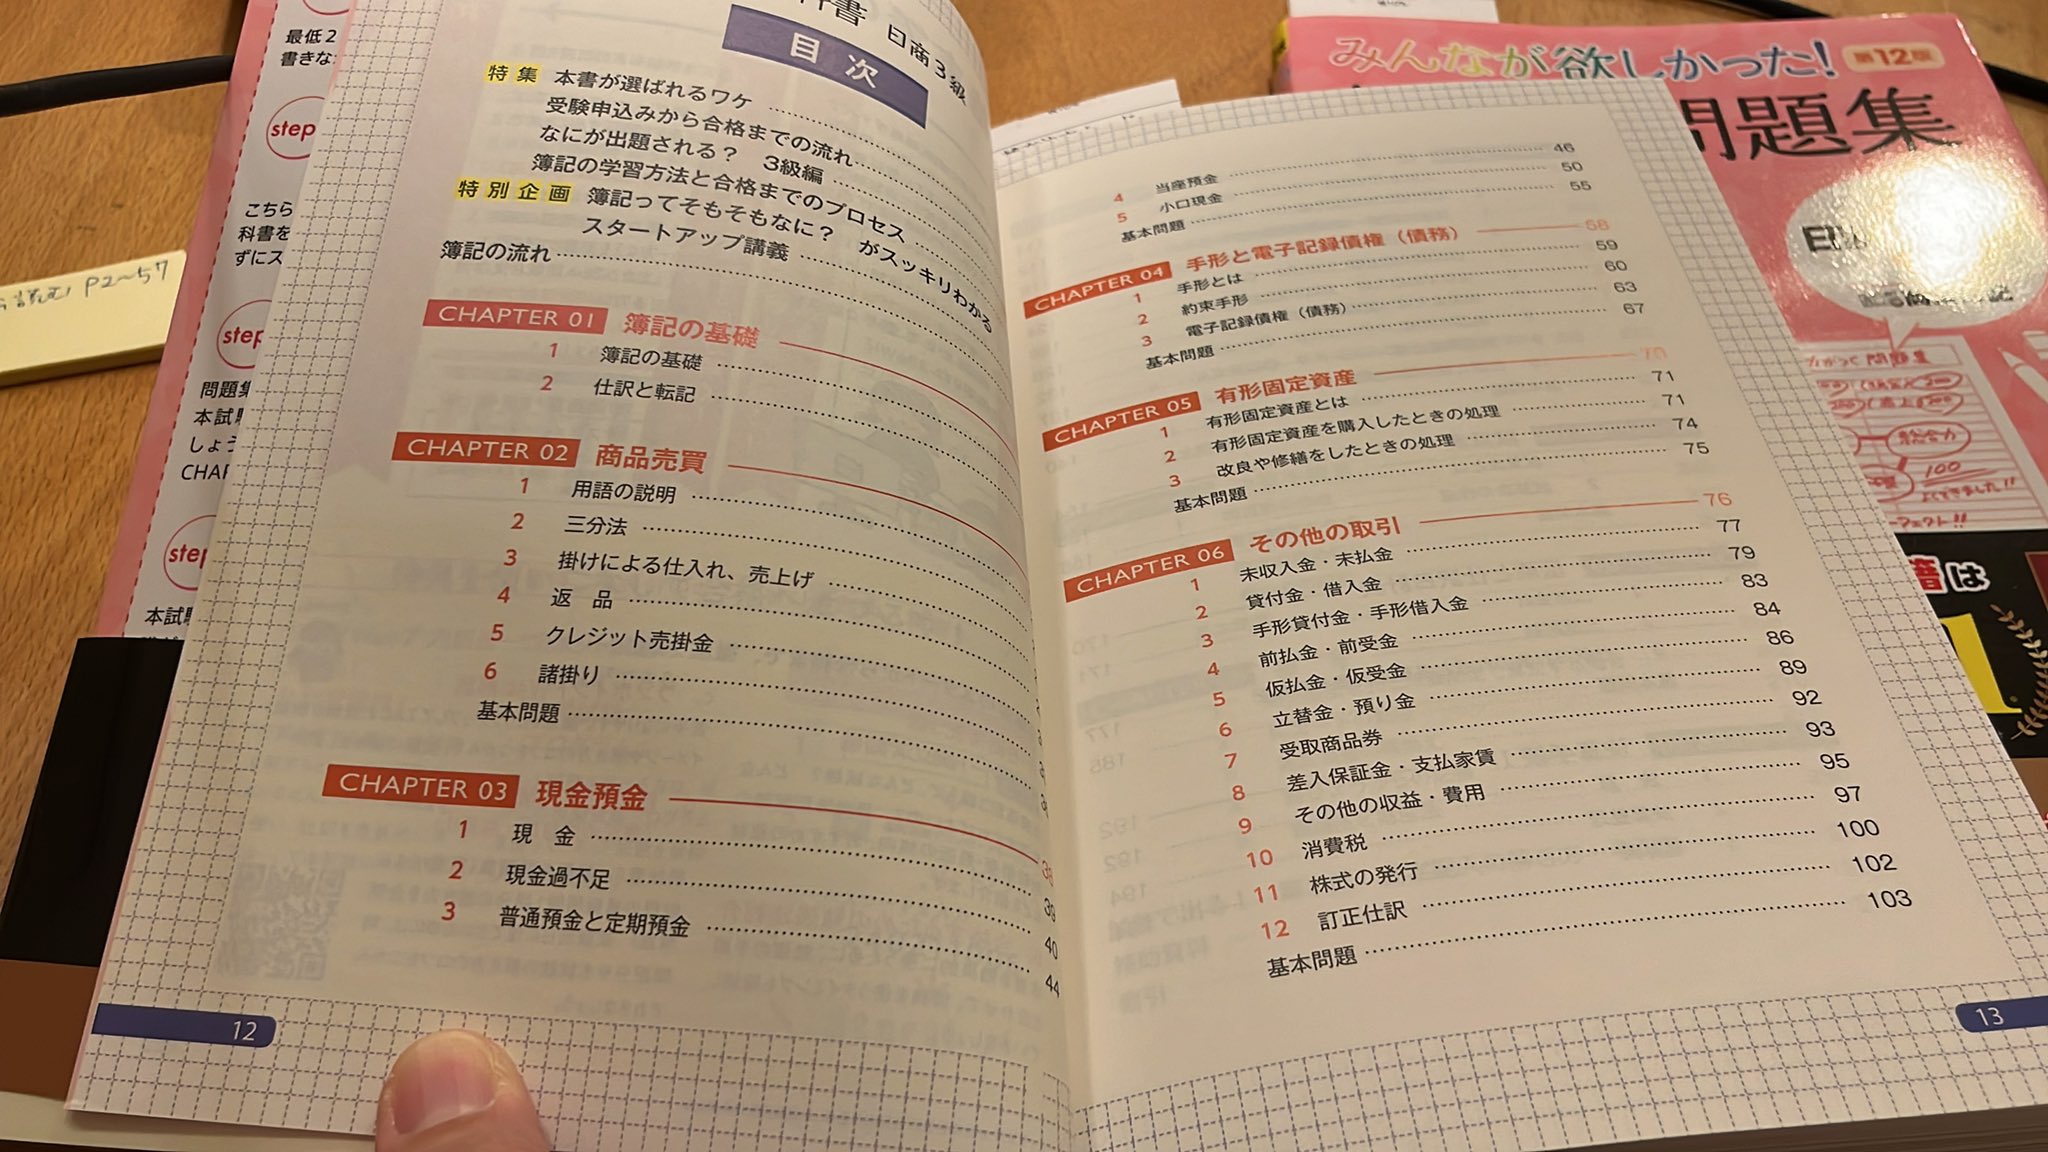 最低2
書きな
step
こちら
科書を
ずにス
step
問題集
本試験
しょう
CHAP
step
本試験
読む P2〜57
書 日商3級
目次
特集 本書が選ばれるワケ
受験申込みから合格までの流れ
なにが出題される? 3級編
簿記の学習方法と合格までのプロセス
特別企画 簿記ってそもそもなに? がスッキリわかる
スタートアップ講義
簿記の流れ
CHAPTER 01 簿記の基礎
1 簿記の基礎
2 仕訳と転記
CHAPTER 02 商品売買
1 用語の説明
2 三分法
3 掛けによる仕入れ、売上げ
4 返 品
5 クレジット売掛金
6 諸掛り
基本問題
CHAPTER 03 現金預金 38
1 現 金 39
2 現金過不足 40
3 普通預金と定期預金 44
12
4 当座預金 46
5 小口現金 50
基本問題 55
CHAPTER 04 手形と電子記録債権(債務) 58
1 手形とは 59
2 約束手形 60
3 電子記録債権(債務) 63
基本問題 67
CHAPTER 05 有形固定資産 70
1 有形固定資産とは 71
2 有形固定資産を購入したときの処理 71
3 改良や修繕をしたときの処理 74
基本問題 75
CHAPTER 06 その他の取引 76
1 未収入金・未払金 77
2 貸付金・借入金 79
3 手形貸付金・手形借入金 83
4 前払金・前受金 84
5 仮払金・仮受金 86
6 立替金・預り金 89
7 受取商品券 92
8 差入保証金・支払家賃 93
9 その他の収益・費用 95
10 消費税 97
11 株式の発行 100
12 訂正仕訳 102
基本問題 103
13
みんなが欲しかった! 第12版
問題集
問題集
総合力
100
よくできました!!
ーフェクト!!
書籍は